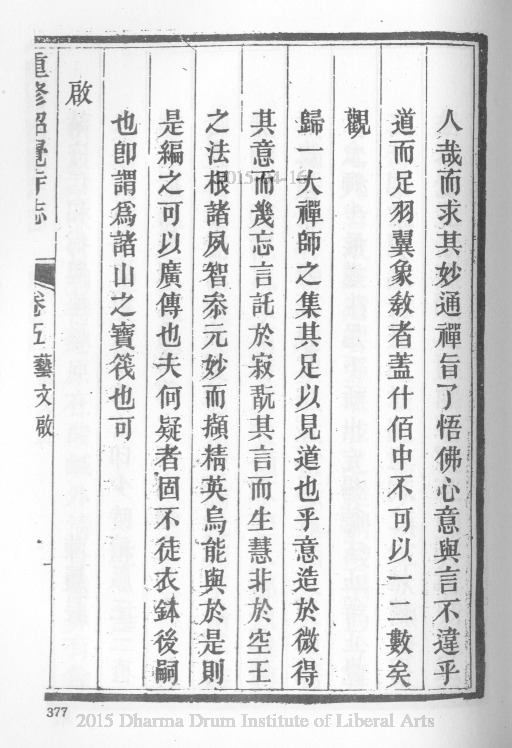 人哉而求其妙通禪旨了悟佛心意與言不違乎
道而足羽翼象敎者蓋什佰中不可以一二數矣
觀
歸一大禪師之集其足以見道也乎意造於微得
其意而幾忘言託於寂翫其言而生慧非於空王
之法根諸夙智叅元妙而擷精英烏能與於是則
是編之可以廣傳也夫何疑者固不徒衣鉢後嗣
也卽謂爲諸山之寶筏也可
啟
重修昭覺寺志
卷五藝文啟
377
2015-04-16
2015 Dharma Drum Institute of Liberal Arts